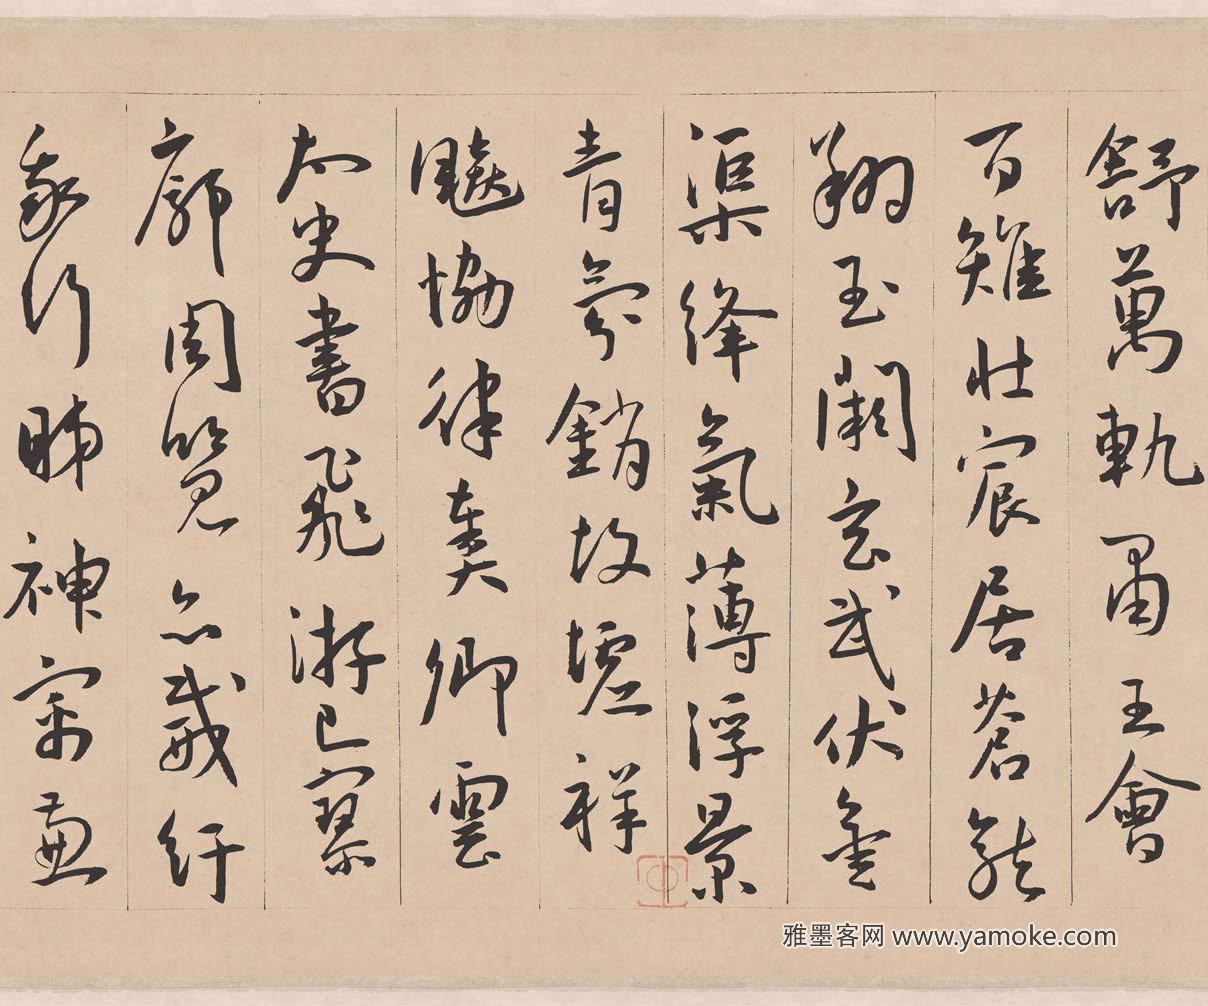 舒萬軌肅王會
百雉壯宸居蒼龍
翔玉闕玄武伏金
渠絳氣薄浮景
青氛銷故墟祥
飈協律奏卿雲
太史書飛游已寥
廓周覽亦載紓
我行睇神兼
雅墨客网 www.yamoke.com